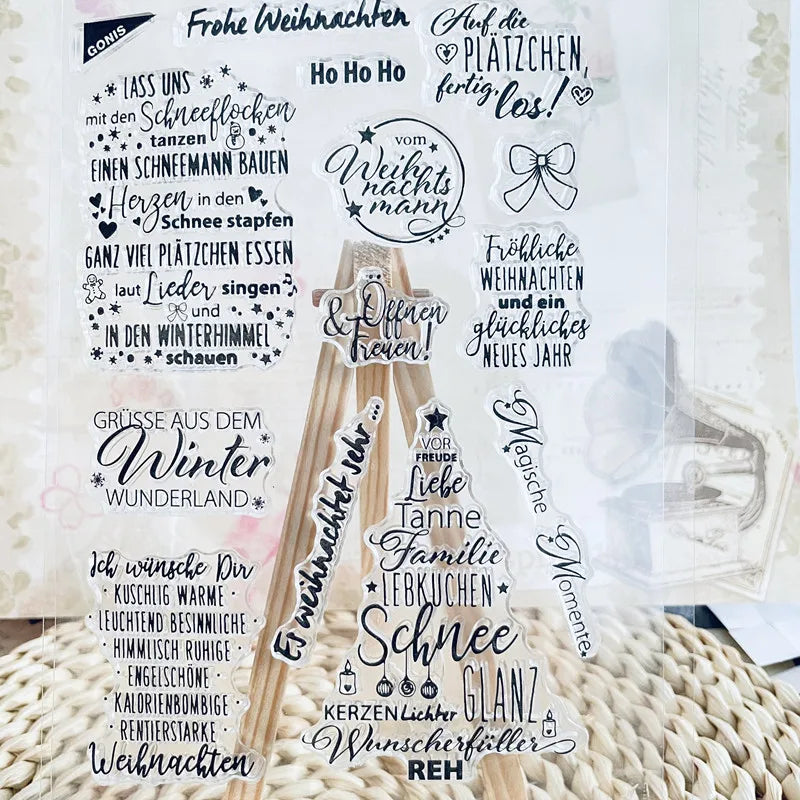 GONIS
Frohe Weihnachten
Ho Ho Ho
Auf die
PLÄTZCHEN,
fertig,
los!
LASS UNS
mit den Schneeflocken
tanzen
EINEN SCHNEEMANN BAUEN
Herzen in den
Schnee stapfen
GANZ VIEL PLÄTZCHEN ESSEN
laut Lieder singen
und
IN DEN WINTERHIMMEL
schauen
vom
Weih
nachts
mann
Fröhliche
WEIHNACHTEN
und ein
glückliches
NEUES JAHR
Öffnen
& Freuen!
GRÜSSE AUS DEM
Winter
WUNDERLAND
Er weihnachtet sehr ...
VOR
FREUDE
Liebe
Tanne
Familie
LEBKUCHEN
Schnee
GLANZ
KERZEN Lichter
Wunscherfüller
REH
Magische
Momente
Ich wünsche Dir
· KUSCHLIG WARME ·
· LEUCHTEND BESINNLICHE ·
· HIMMLISCH RUHIGE ·
· ENGELSCHÖNE ·
· KALORIENBOMBIGE ·
· RENTIERSTARKE ·
Weihnachten